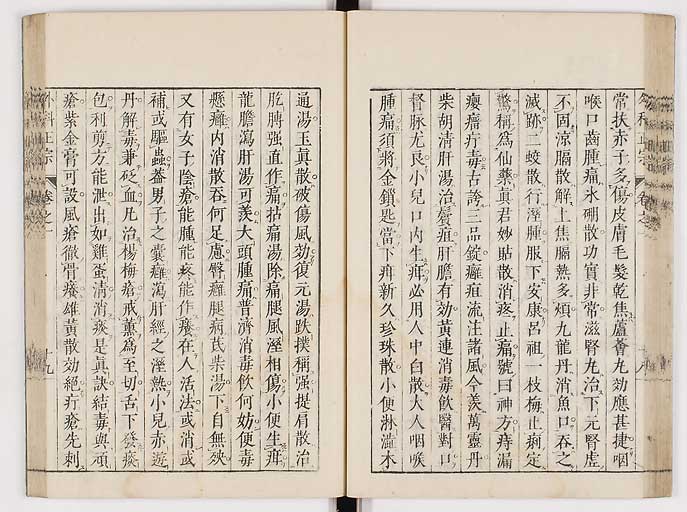 常扶赤子多傷皮膚毛髮乾焦蘆薈九効應甚捷咽
喉口齒腫痛氷硼散功實非常滋腎九治下元腎虛
不固涼膈散解上焦膈熱多煩九龍丹消魚口吞之
滅跡二蛟散行溼腫服下安康呂祖一枝梅止痢定
驚稱為仙藥眞君妙貼散消疼止痛號曰神方痔漏
癭瘤疔毒古誇三品錠癰疽流注諸風今羨萬靈丹
柴胡清肝湯治鬢疽肝膽有効黄連消毒飲醫對口
督脉尤良小兒口内生疳必用人中白散大人咽喉
腫痛須將金鎖匙當下疳新久珍珠散小便淋澁木
通湯玉眞散破傷風効復元湯跌撲稱强提肩散治
肐膊强直作痛拈痛湯除痛腿風溼相傷小便生疳
龍膽瀉肝湯可羨大頭腫痛普濟消毒飲何妨便毒
懸癰内消散吞何足慮臀癰腿病茋柴湯下自無殃
又有女子陰瘡能腫能疼能作癢在人活法或消或
補或驅蟲蓋男子之囊癰瀉肝經之溼熱小兒赤遊
丹解毒兼砭血凡治楊梅瘡戒薰為至切舌下發痰
包利剪方能泄出如雞蛋清消痰是眞訣結毒與頑
瘡紫金膏可設風瘡徹骨癢雄黃散効絕疔瘡先刺
外科正宗
卷之一
十九